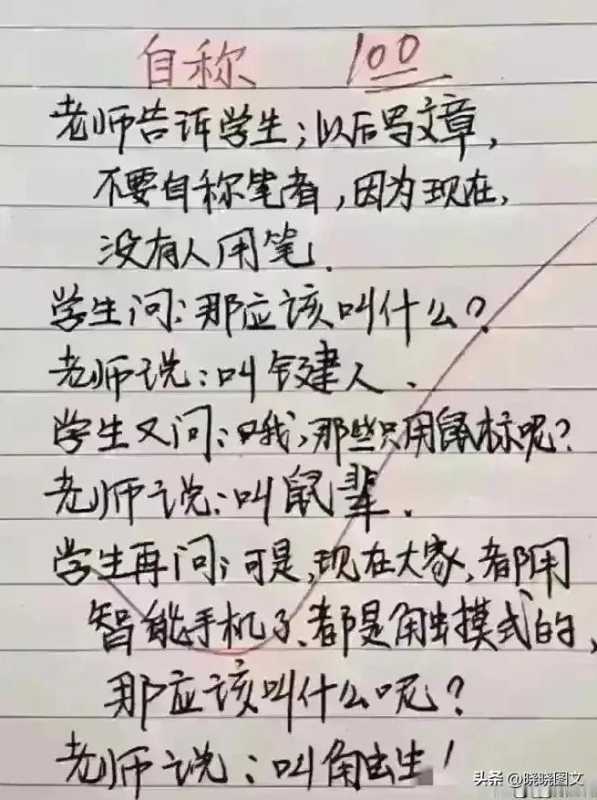 自称 100
老师告诉学生；以后写文章，
不要自称笔者，因为现在，
没有人用笔．
学生问：那应该叫什么？
老师说：叫键人．
学生又问：哦，那些只用鼠标呢？
老师说：叫鼠辈．
学生再问；可是，现在大家，都用
智能手机了、都是触摸式的，
那应该叫什么呢？
老师说：叫触生！
头条 @晓晓图文